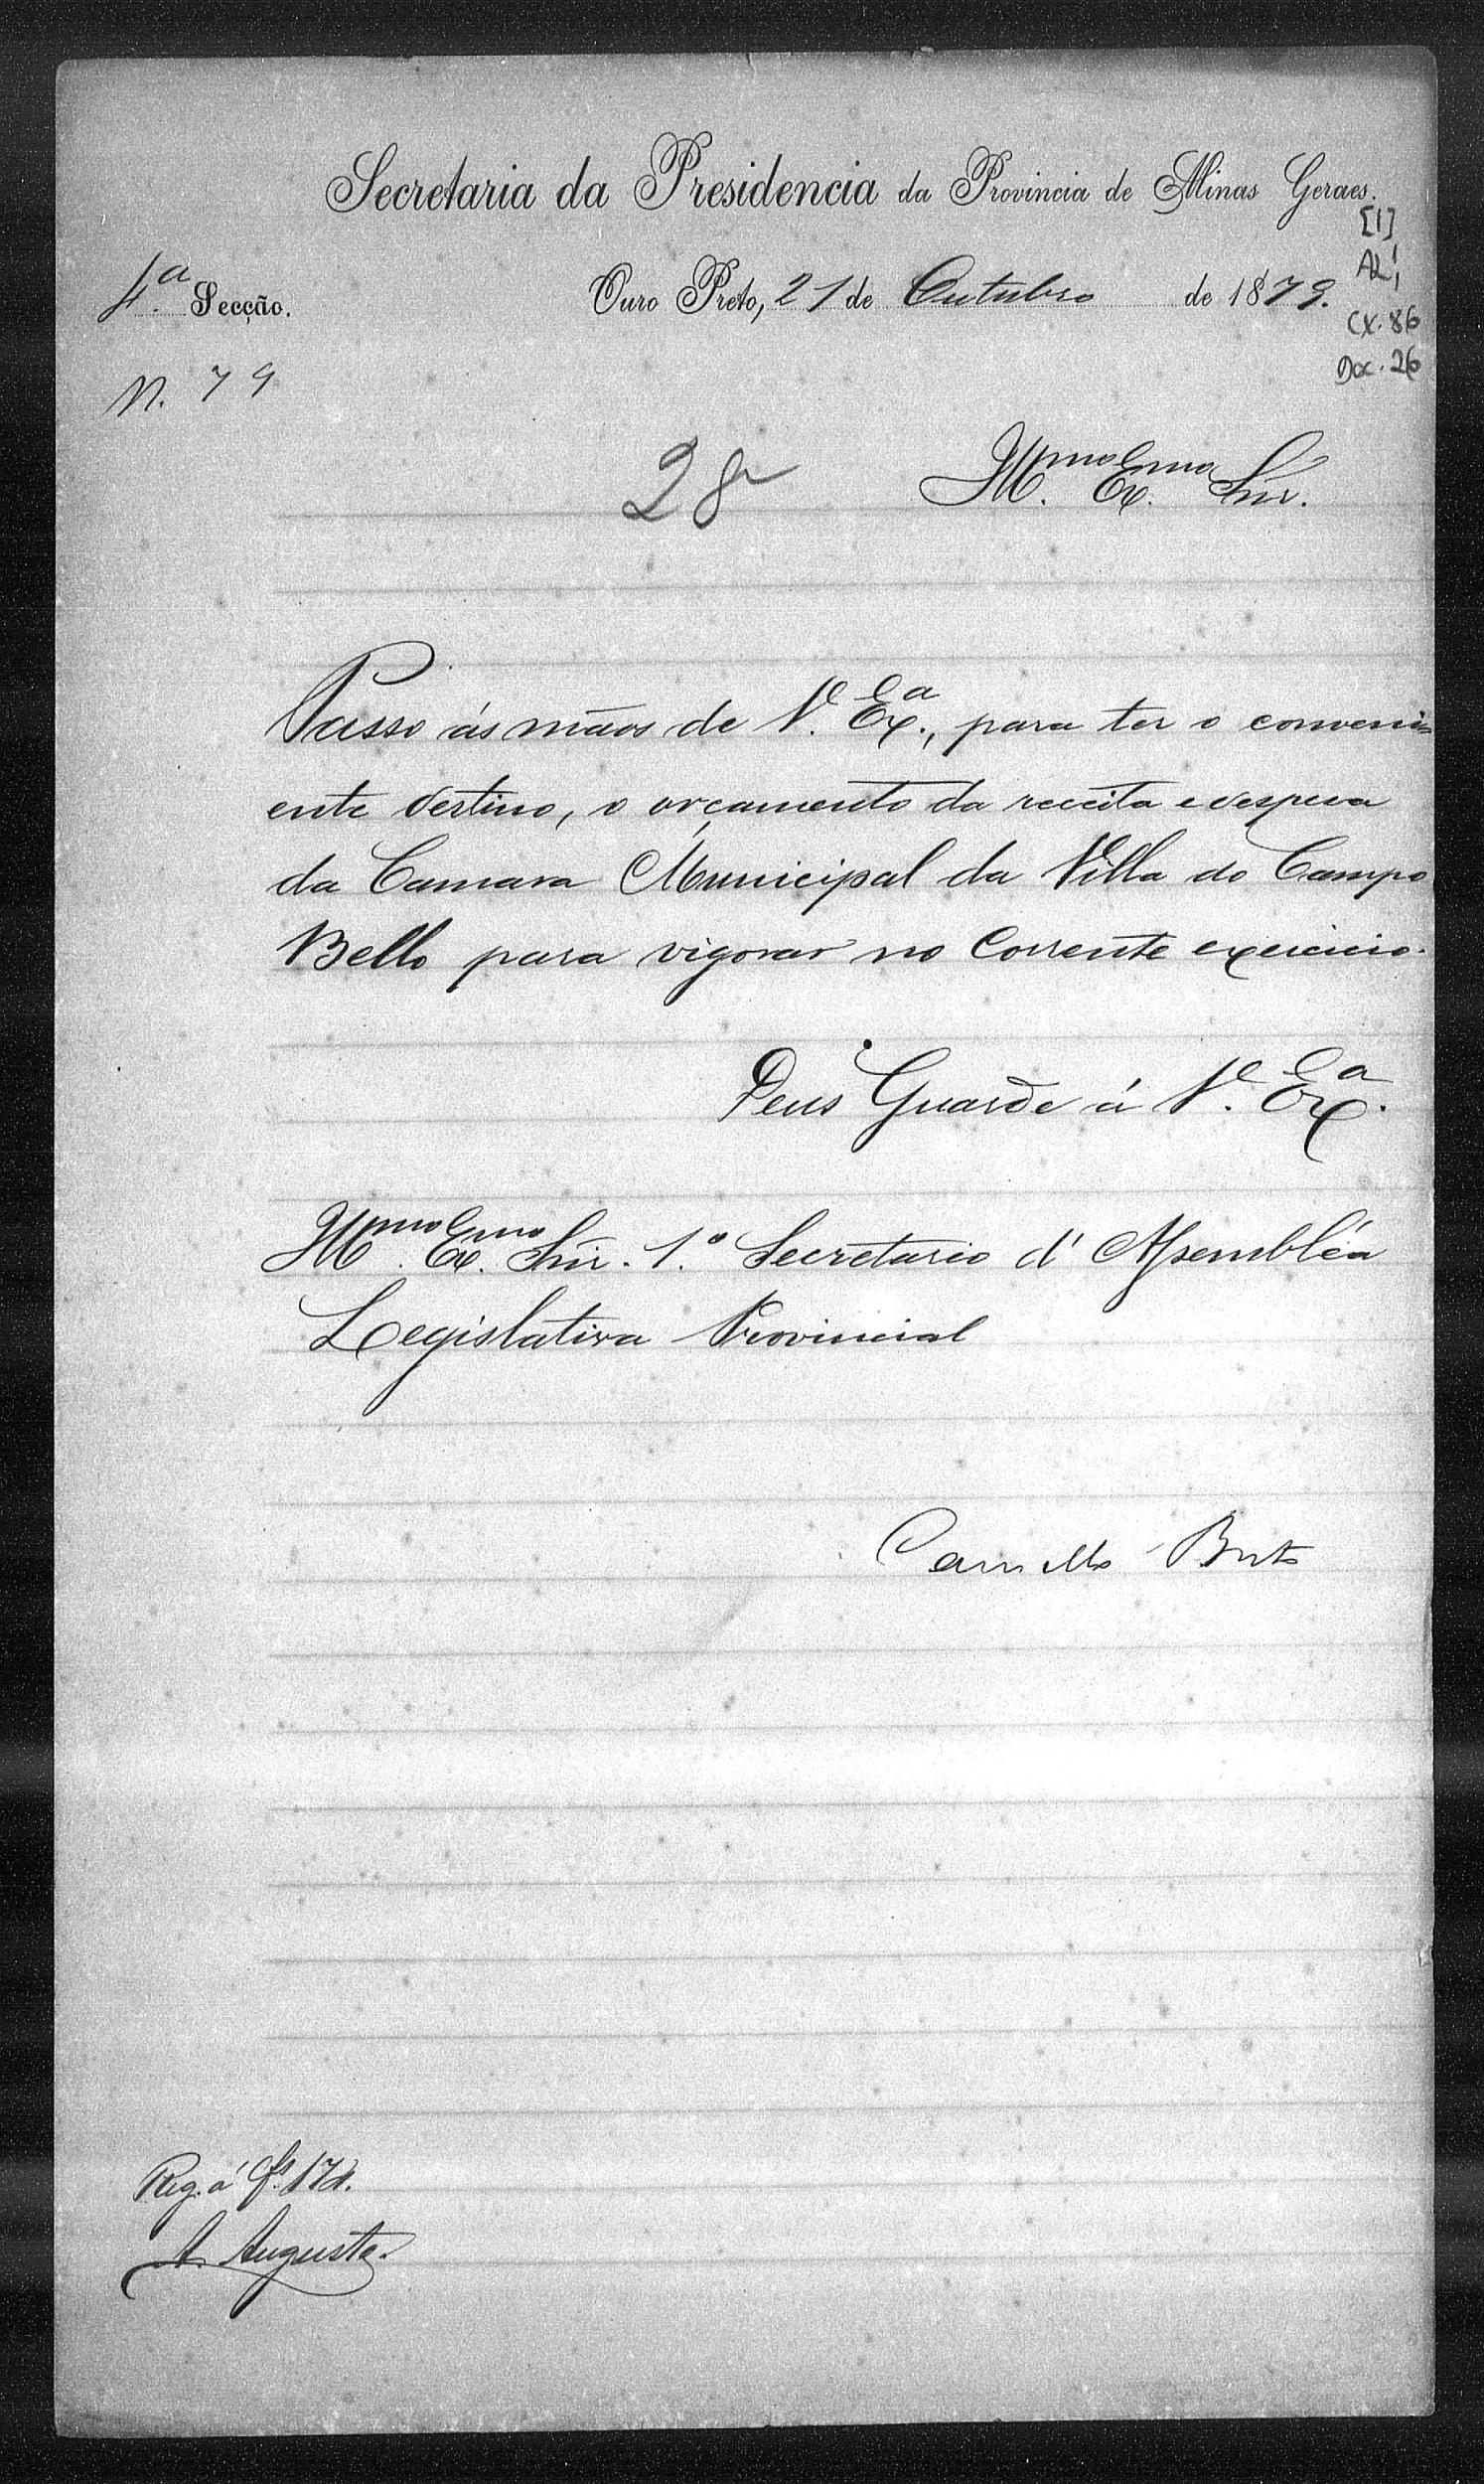 Secretaria da Presidencia da Provincia de Minas Geraes.
[1]
AL1,
CX. 86
Doc. 26
4.ª Secção.
Ouro Preto, 21 de Outubro de 1879.
N. 79
28
Ill.mo Ex.mo Snr.
Passo ás mãos de V. Ex.ª, para ter o conveni=
ente destino, o orçamento da receita e despesa
da Camara Municipal da Villa do Campo
Bello para vigorar no Corrente exercicio.
Deus Guarde á V. Ex.ª
Ill.mo Ex.mo Snr. 1.º Secretario d' Assembléa
Legislativa Provincial
Camillo Brito
Reg. á fs
A. Augusto.